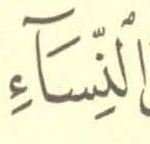 ٱلْنِّسَآءِ